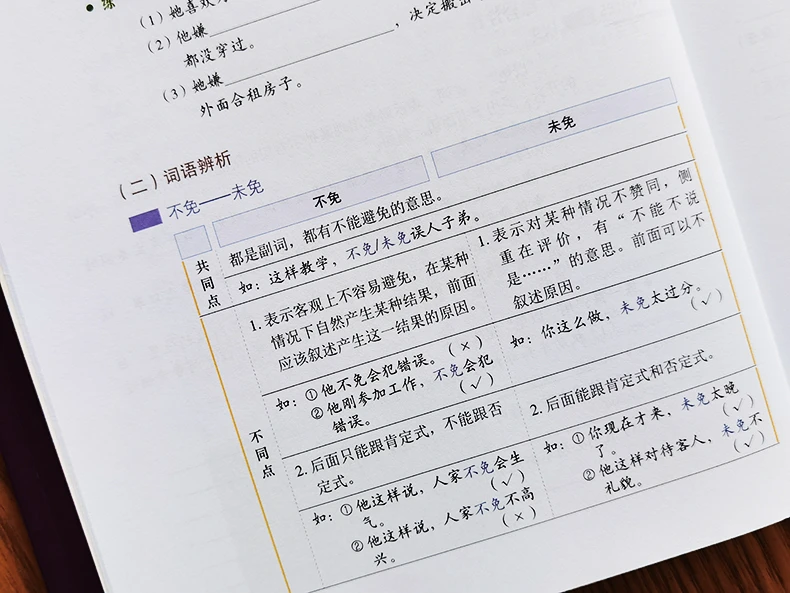 (1) 她喜欢
(2) 他嫌____________________，决定搬出
都没穿过。
(3) 她嫌
外面合租房子。
（二）词语辨析
不免——未免
不免
未免
共同点
都是副词，都有不能避免的意思。
如：这样教学，不免/未免误人子弟。
不同点
1. 表示客观上不容易避免，在某种
情况下自然产生某种结果，前面
应该叙述产生这一结果的原因。
1. 表示对某种情况不赞同，侧
重在评价，有“不能不说
是……”的意思。前面可以不
叙述原因。
如：①他不免会犯错误。（×）
②他刚参加工作，不免会犯
错误。（√）
如：你这么做，未免太过分。
（√）
2. 后面只能跟肯定式，不能跟否
定式。
2. 后面能跟肯定式和否定式。
如：①他这样说，人家不免会生
气。（√）
②他这样说，人家不免不高
兴。（×）
如：①你现在才来，未免太晚
了。（√）
②他这样对待客人，未免不
礼貌。（√）